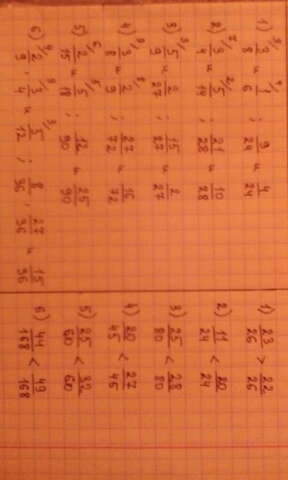 1) ³⁾3/8 и ⁴⁾1/6 ; 9/24 и 4/24
2) ⁷⁾3/4 и ²⁾5/14 ; 21/28 и 10/28
3) ³⁾5/9 и 2/27 ; 15/27 и 2/27
4) ⁹⁾3/8 и ⁸⁾2/9 ; 27/72 и 16/72
5) ⁶⁾2/15 и ⁵⁾5/18 ; 12/90 и 25/90
6) ⁴⁾2/9 , ⁹⁾3/4 и ³⁾5/12 ; 8/36 , 27/36 и 15/36
1) 23/26 > 22/26
2) 11/24 < 20/24
3) 25/80 < 28/80
4) 20/45 < 27/45
5) 25/60 < 32/60
6) 44/168 < 49/168